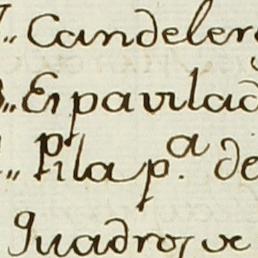 Candeler
Espavilad
Pila p.ª de
Quadros de